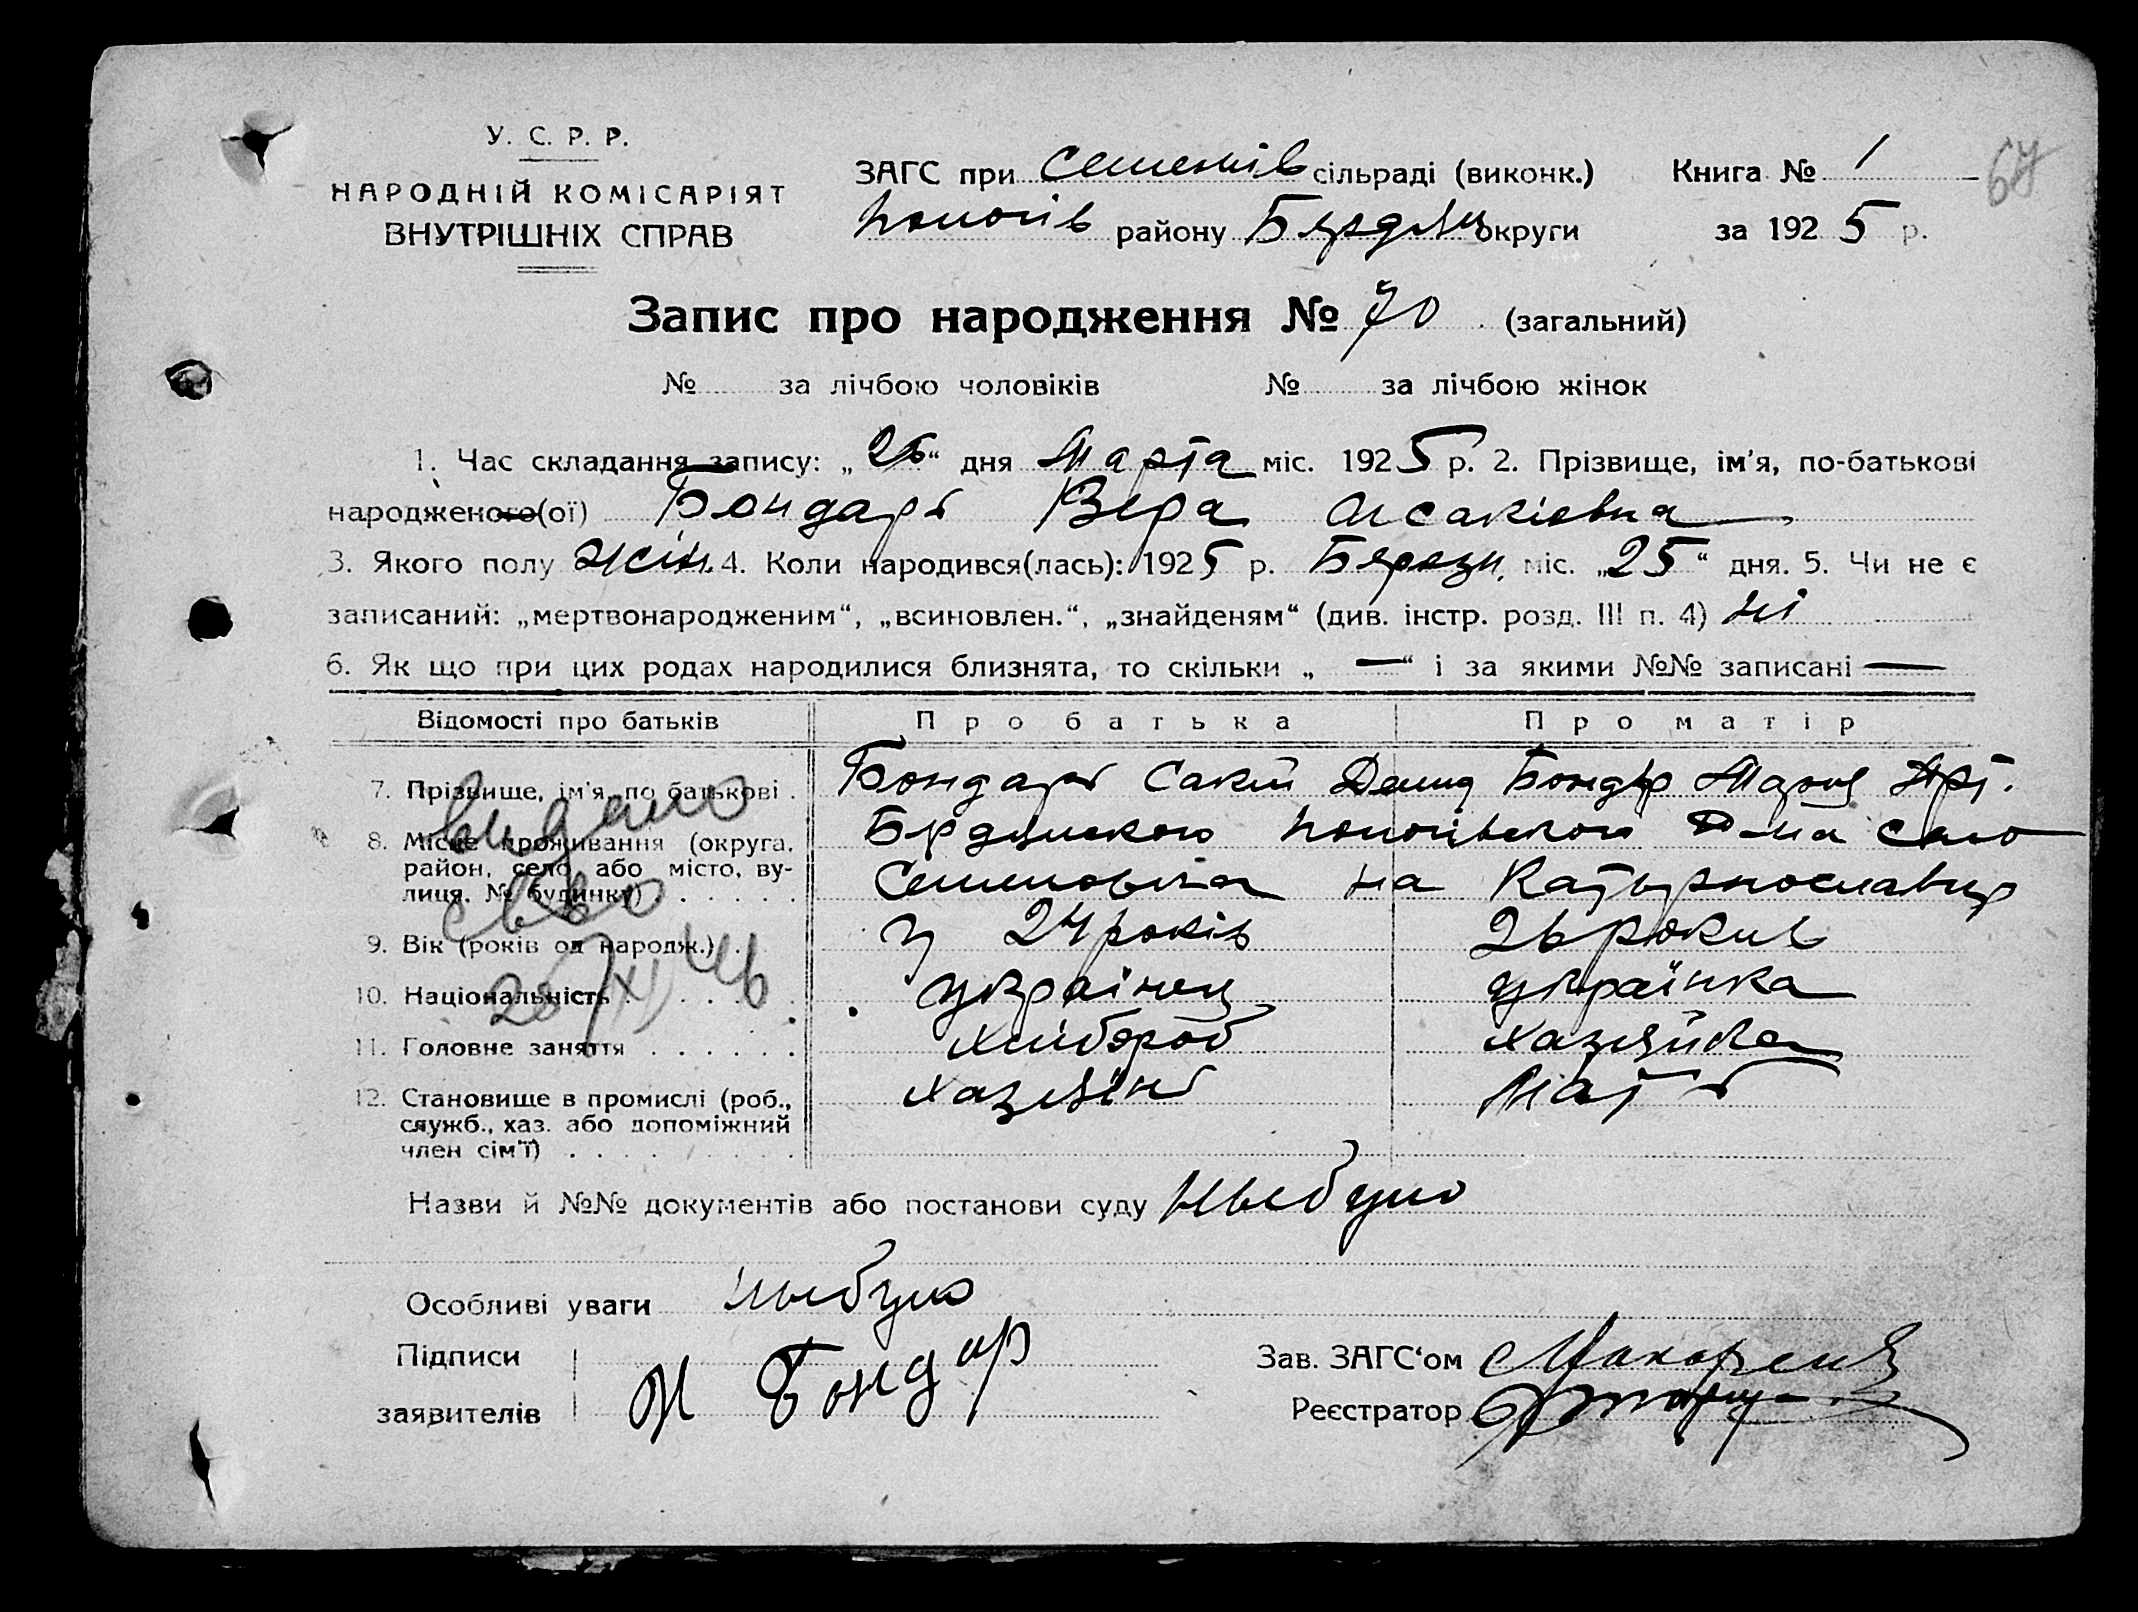 У. С. Р. Р.
НАРОДНІЙ КОМІСАРІЯТ
ВНУТРІШНІХ СПРАВ
ЗАГС при Семенів сільраді (виконк.)
Пологів району Бярдян округи
Книга № 1
за 1925 р.
67
Запис про народження № 70 (загальний)
№ за лічбою чоловіків № за лічбою жінок
1. Час складання запису: „26“ дня Марта міс. 1925 р. 2. Прізвище, ім'я, по-батькові
народженого(ої) Бондарь Вера Исаківна
3. Якого полу жін. 4. Коли народився(лась): 1925 р. Бярозн. міс. „25“ дня. 5. Чи не є
записаний: „мертвонародженим“, „всиновлен.“, „знайденям“ (див. інстр. розд. III п. 4) ні
6. Як що при цих родах народилися близнята, то скільки „ — “ і за якими №№ записані —
Відомості про батьків Про батька Про матір
7. Прізвище, ім'я, по батькові . Бондарь Сакій Бондар Мария
8. Місце проживання (округа,
район, село, або місто, ву-
лиця, № будинку) . . . . .
на
9. Вік (років од народж.) . 24 років 26 рокив
10. Національність . . . . . україниц українка
11. Головне заняття . . . . . . хлібороб хазяйка
12. Становище в промислі (роб., хазяїнь мать
служб., хаз. або допоміжний
член сім'ї) . . . . . . . . .
Видано
св-во
20/XI 46
Назви й №№ документів або постанови суду ныбуло
Особливі уваги ныбуло
Підписи
заявителів
И Бондар
Зав. ЗАГС‘ом
Реєстратор